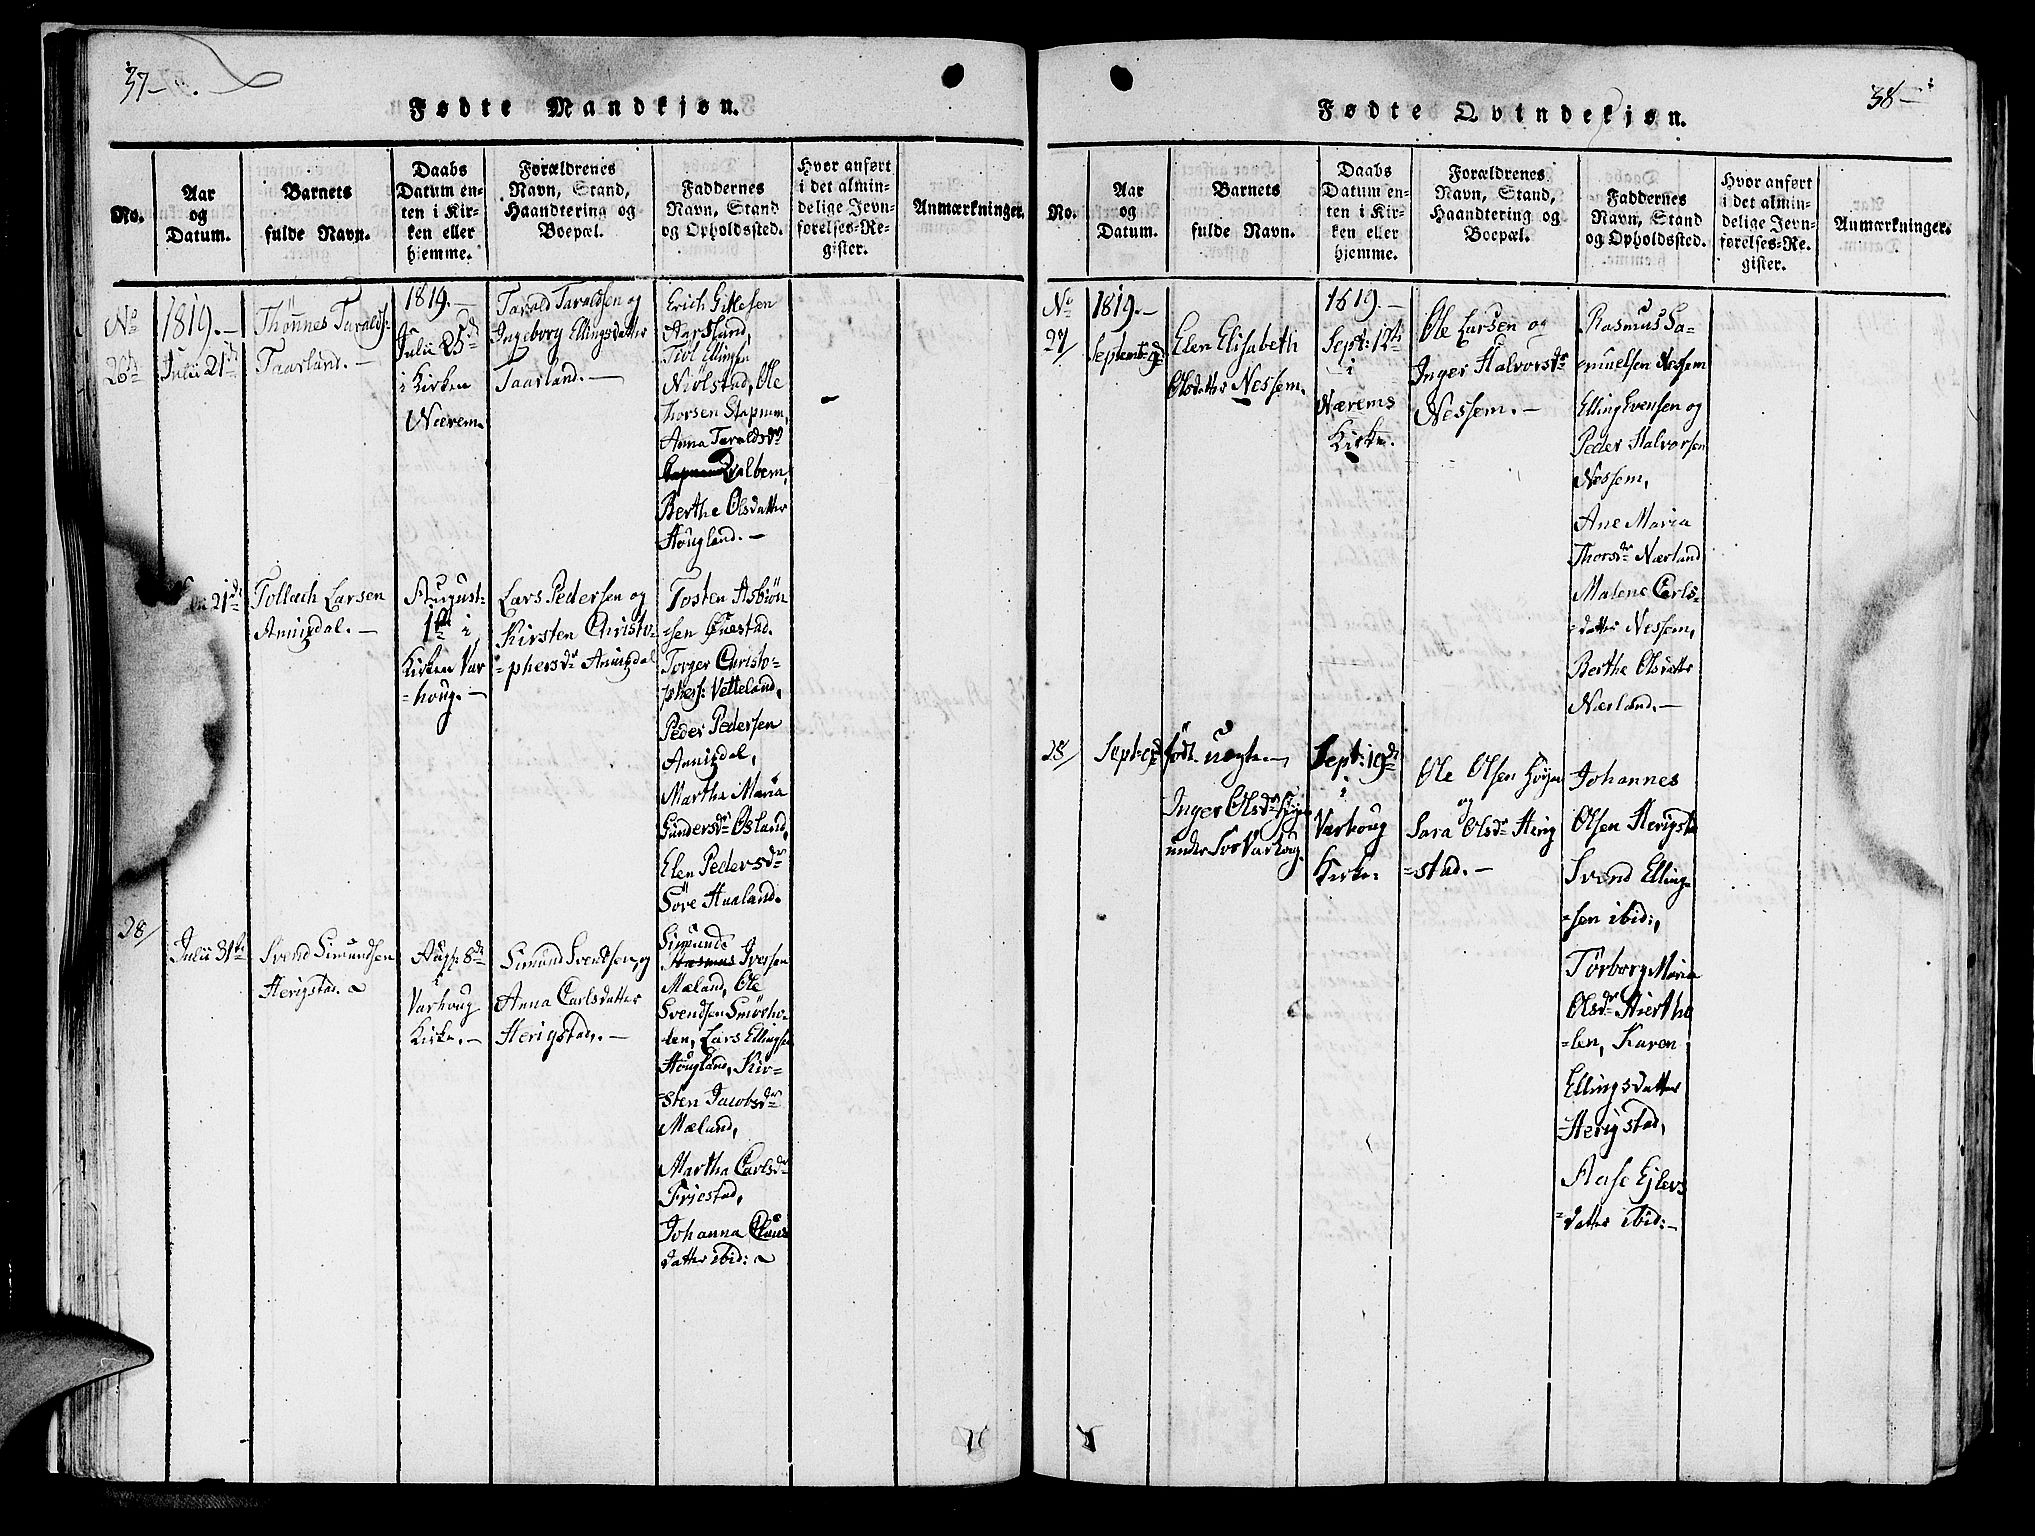 37-.
Fødte Mandkjøn.
No.
Aar
og
Datum.
Barnets
fulde Navn.
Daabs
Datum en-
ten i Kir-
ken eller
hjemme.
Forældrenes
Navn, Stand,
Haandtering og
Boepæl.
Faddernes
Navn, Stand
og Opholdssted.
Hvor anført
i det almin-
delige Jevn-
førelses-Re-
gister.
Anmærkninger.
No
26de
1819.-
Julii 21de
Thönnes Taralds:
Taarland.-
1819.-
Julii 25de
i Kirken
Nærem
Tarald Taraldsen og
Ingeborg Ellingsdatter
Taarland.-
Erich Gitlesen
Aarsland,
Tiöl Ellingsen
Niölstad, Ole
Thorsen Stapnum,
Anna Taraldsdr
Qvalbem,
Berthe Olsdatter
Hougland.-
21de
Tollach Larsen
Aniugdal.-
August:
1te i
Kirken Var-
=houg.-
Lars Pedersen og
Kirsten Christo-
=phersdr Aniugdal
Tosten Asbiön
=sen Questad.
Torger Christo-
phers: Vetteland,
Peder Pedersen
Aniugdal,
Martha Maria
Gundersdr Osland,
Elen Pedersdr
Söre Haaland.
28/
Julii 31te
Svend Simundsen
Herigstad.
Aug: 8de
i
Varhoug
Kirke.-
Simund Svendsen og
Anna Carlsdatter
Herigstad.-
Simund
Rasmus Ivessen
Mæland, Ole
Svendsen Smörho-
len, Lars Ellingsen
Hougland, Kir-
=sten Jacobsdr
Mæland,
Martha Carlsdr
Friestad,
Johanna Claus
datter ibid:
38-
Fødte Qvindekjøn.
No.
Aar
og
Datum.
Barnets
fulde Navn.
Daabs
Datum en-
ten i Kir-
ken eller
hjemme.
Forældrenes
Navn, Stand,
Haandtering og
Boepæl.
Faddernes
Navn, Stand
og Opholdssted.
Hvor anført
i det almin-
delige Jevn-
førelses-Re-
gister.
Anmærkninger.
No
27/
1819.-
Septemb:
Elen Elisabeth
Olsdatter Nessem.
1819.-
Sept: 12te
i
Nærems
Kirke.
Ole Larsen og
Inger Halvorsdr
Nessem.-
Rasmus Sa-
emuelsen Nessem
Elling Evensen og
Peder Halvorsen
Nessem,
Ane Maria
Thorsdr Nærland
Malene Carls-
=datter Nessem,
Berthe Olsdatter
Nærland.-
28/
Sept:
födt uægte
Inger Olsdr
Sept: 19de
i
Varhoug
Kirke.
Ole Olsen
og
Sara Olsdr Herig
=stad.-
Johannes
Olsen Herigsta
Svend Elling-
=sen ibid:,
Törborg Maria
Olsdr Hiertho
=len, Karen
Ellingsdatter
Herigstad,
Aase Ejlers
=datter ibid:-